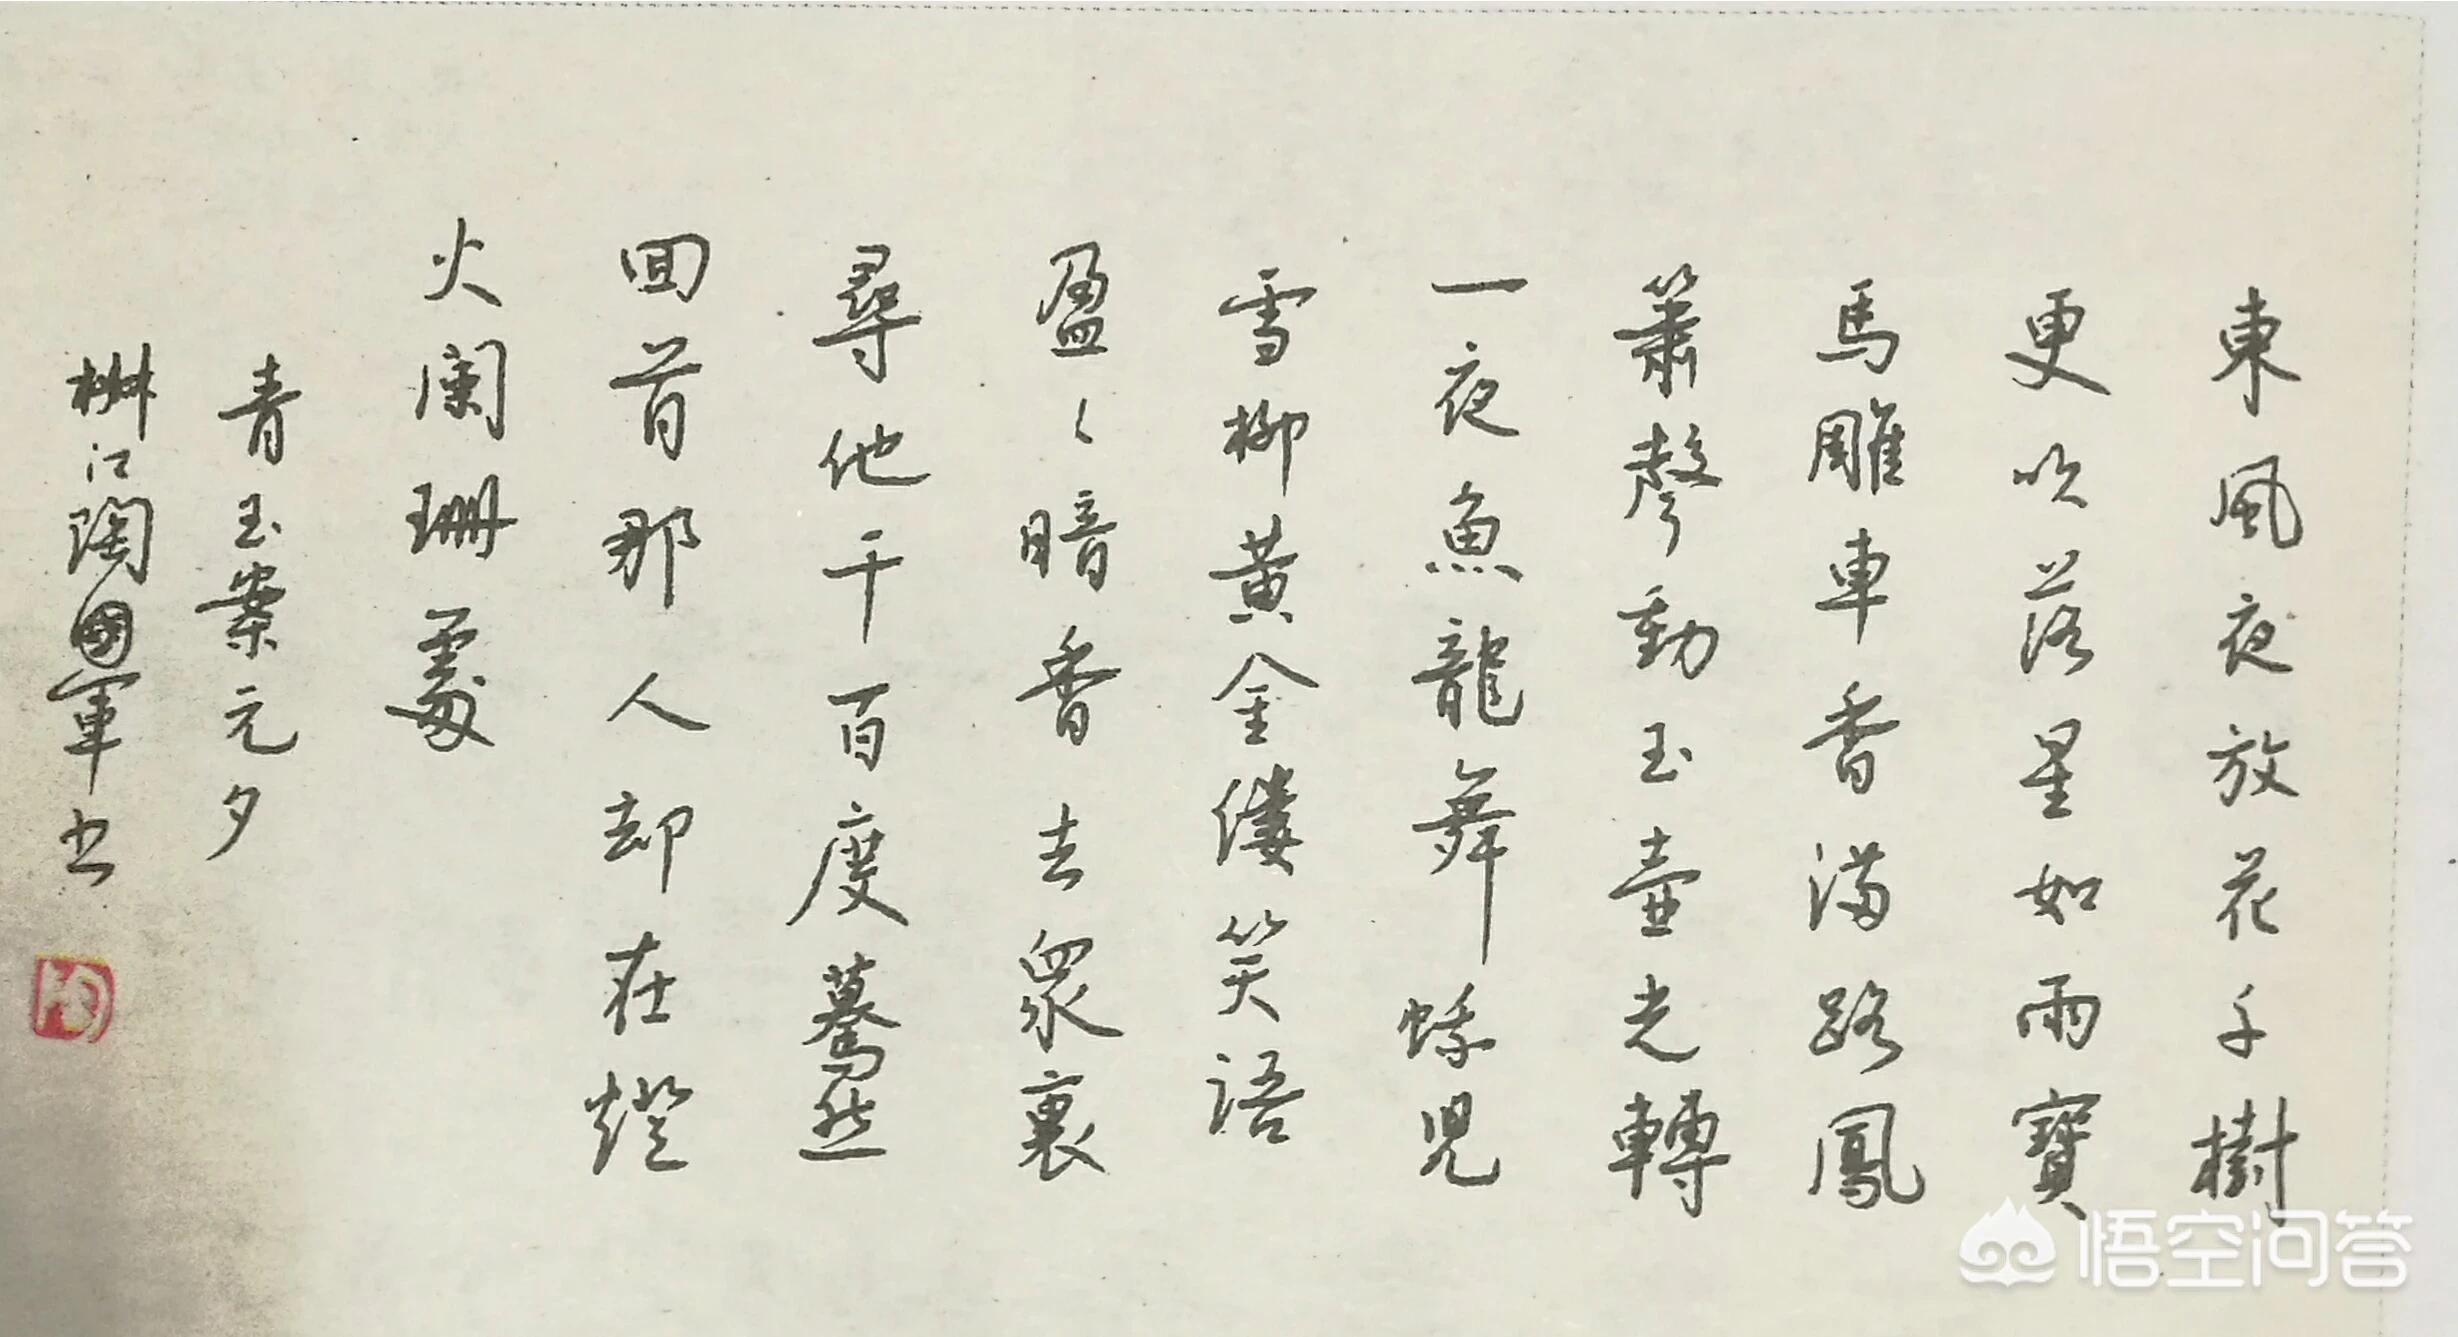 東風夜放花千樹
更吹落星如雨寶
馬雕車香滿路鳳
簫聲動玉壺光轉
一夜魚龍舞蛾兒
雪柳黃金縷笑語
盈〻暗香去衆裏
尋他千百度驀然
回首那人却在燈
火闌珊處
青玉案元夕
江陶國軍书
悟空问答